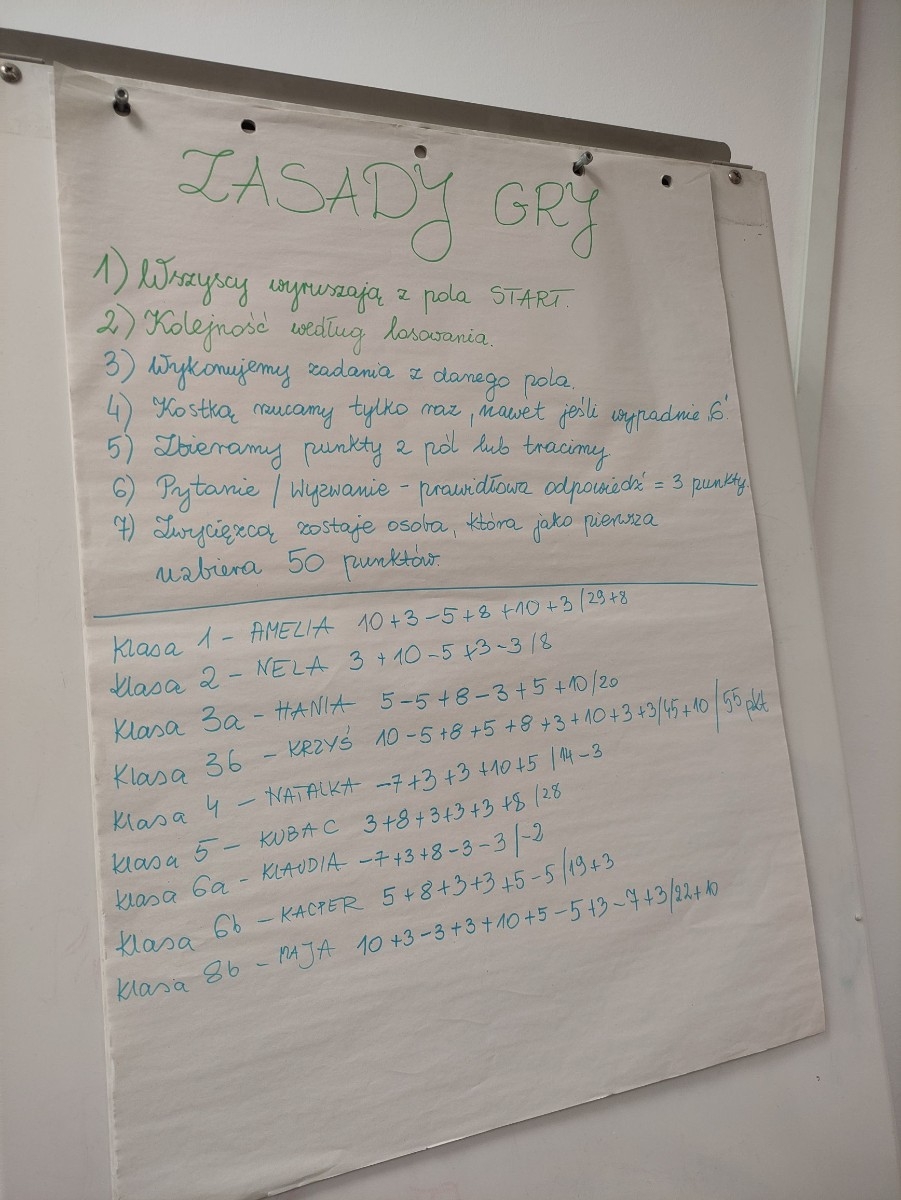 ZASADY GRY
1) Wszyscy wyruszają z pola START.
2) Kolejność według losowania.
3) Wykonujemy zadania z danego pola.
4) Kostką rzucamy tylko raz, nawet jeśli wypadnie „6”.
5) Zbieramy punkty z pól lub tracimy
6) Pytanie / Wyzwanie - prawidłowa odpowiedź = 3 punkty.
7) Zwycięzcą zostaje osoba, która jako pierwsza
uzbiera 50 punktów.
Klasa 1 - AMELIA 10+3-5+8+10+3/29+8
Klasa 2 - NELA 3+10-5+3-3/8
Klasa 3a - HANIA 5-5+8-3+5+10/20
Klasa 3b - KRZYŚ 10-5+8+5+8+3+10+3+3/45+10/55 pkt
Klasa 4 - NATALKA -7+3+3+10+5/14-3
Klasa 5 - KUBA C 3+8+3+3+3+8/28
Klasa 6a - KLAUDIA -7+3+8-3-3/-2
Klasa 6b - KACPER 5+8+3+3+5-5/19+3
Klasa 8b - MAJA 10+3-3+3+10+5-5+3-7+3/22+10